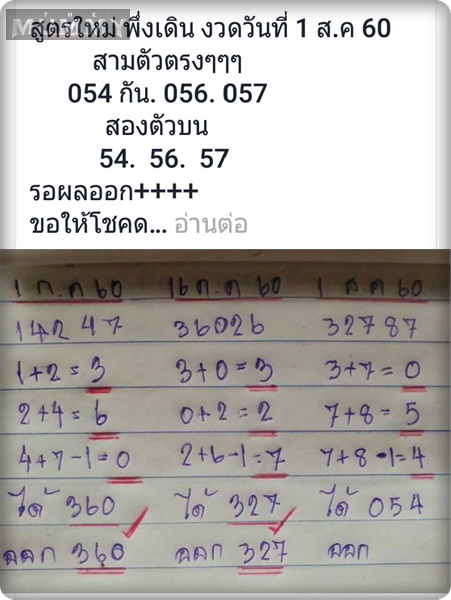 สูตรใหม่ พึ่งเดิน งวดวันที่ 1 ส.ค 60
สามตัวตรงๆๆๆ
054 กัน. 056. 057
สองตัวบน
54. 56. 57
รอผลออก++++
ขอให้โชคด... อ่านต่อ
1 ก.ค 60 16 ก.ค 60 1 ส.ค 60
14247 36026 32787
1+2=3 3+0=3 3+7=0
2+4=6 0+2=2 7+8=5
4+7-1=0 2+6-1=7 7+8-1=4
ได้ 360 ได้ 327 ได้ 054
ออก 360 ออก 327 ออก